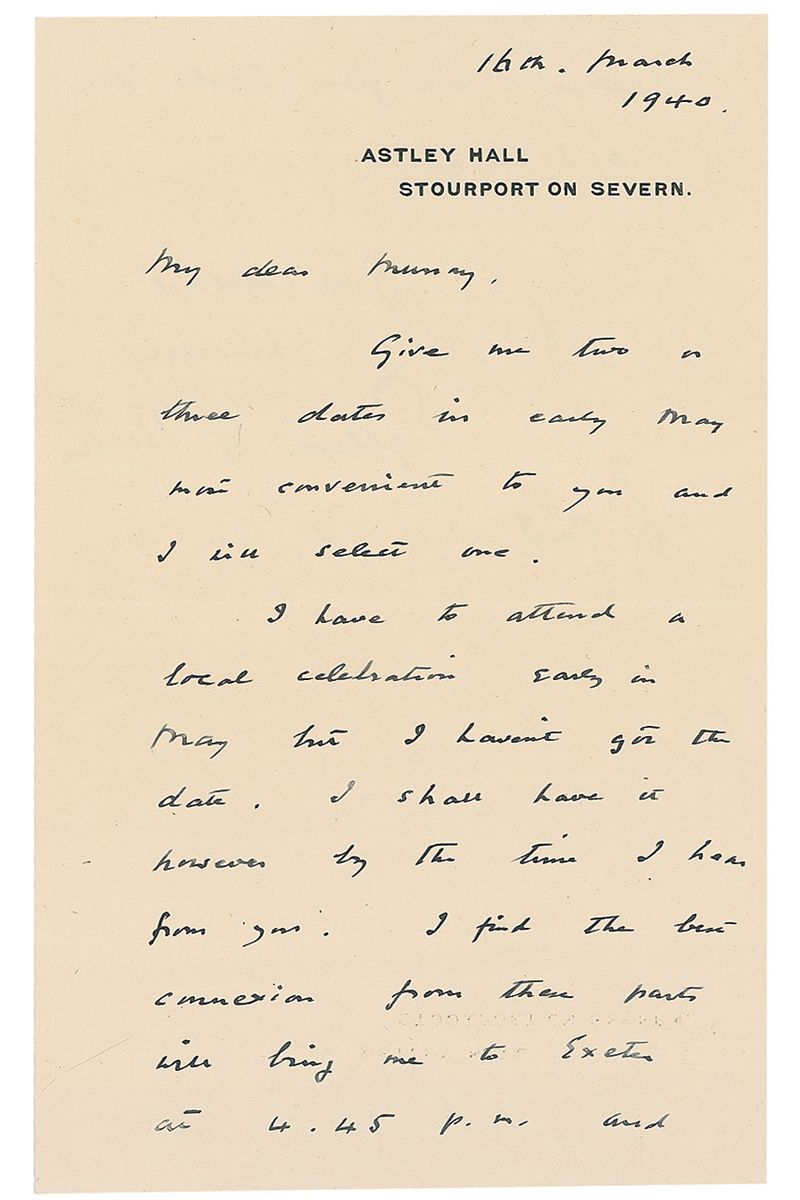 16th. March
1940.
ASTLEY HALL
STOURPORT ON SEVERN.
My dear Murray,
Give me two or
three dates in early May
most convenient to you and
I will select one.
I have to attend a
local celebration early in
May but I haven't got the
date. I shall have it
however by the time I hear
from you. I find the best
connexion from these parts
will bring me to Exeter
at 4.45 p.m. and